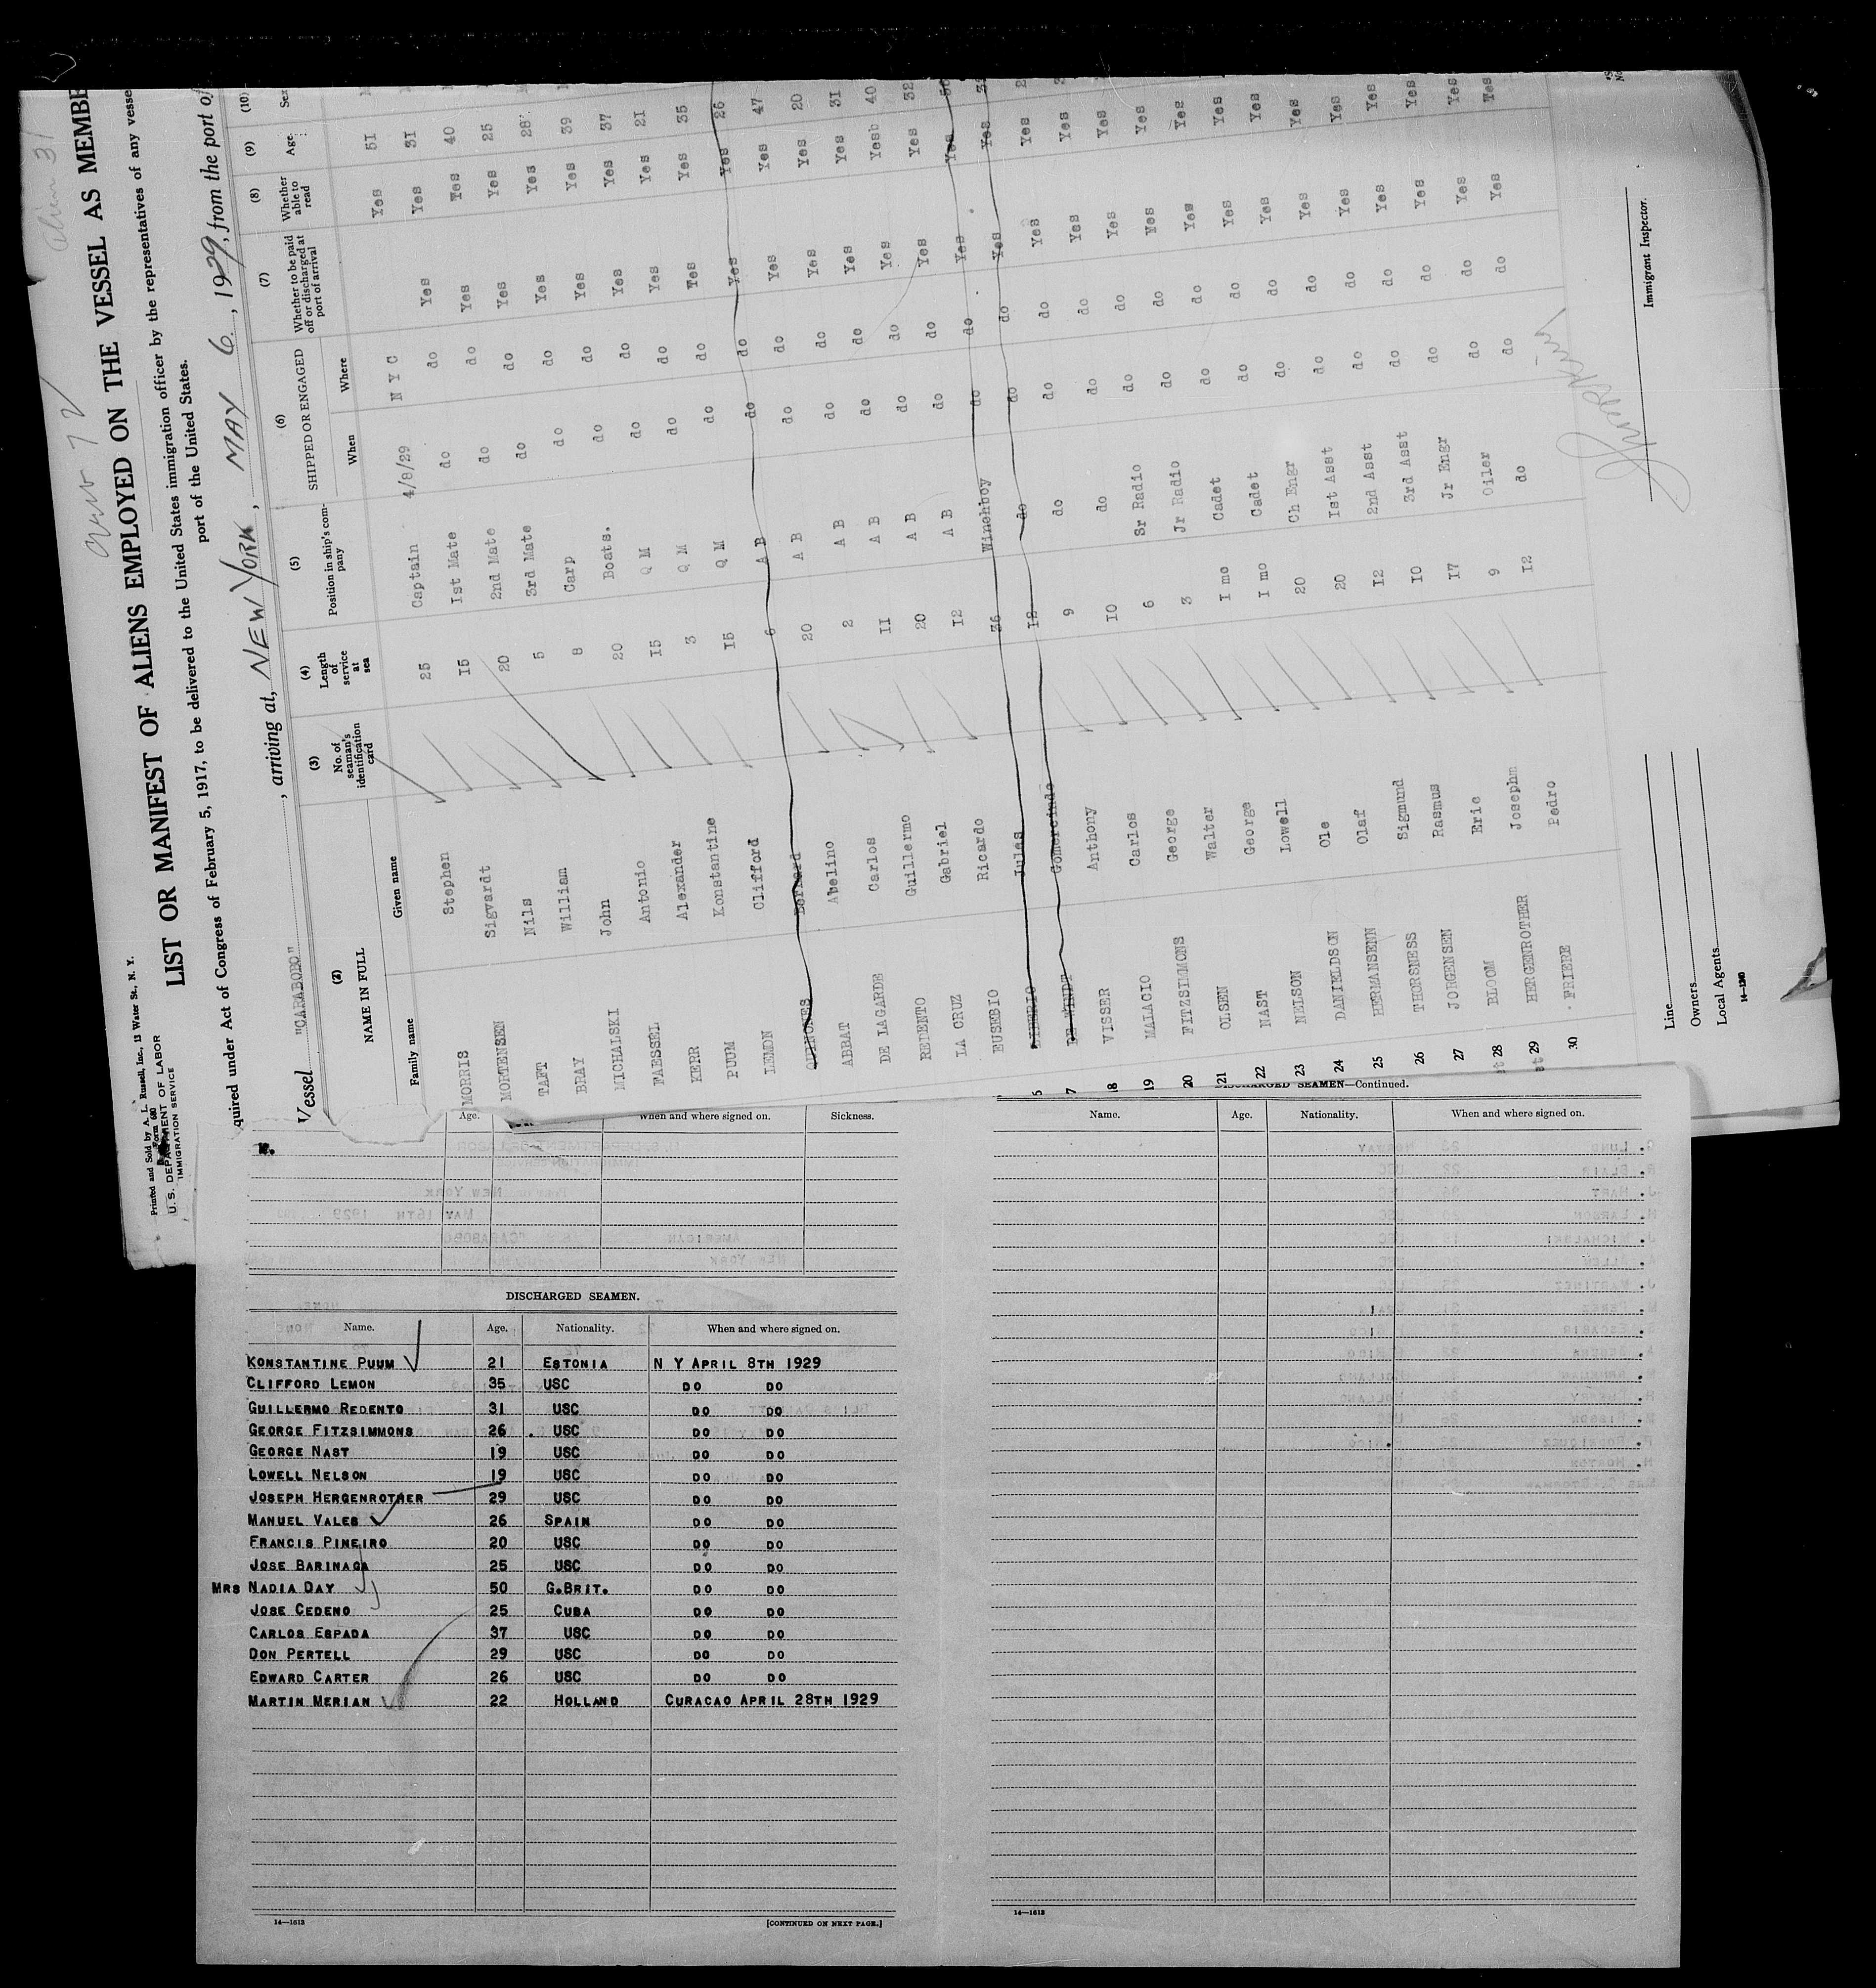 Printed and Sold by A. L. Russell, Inc., 13 Water St., N. Y.
Form 680
U. S. DEPARTMENT OF LABOR
IMMIGRATION SERVICE
LIST OR MANIFEST OF ALIENS EMPLOYED ON THE VESSEL AS MEMBE
quired under Act of Congress of February 5, 1917, to be delivered to the United States immigration officer by the representatives of any vesse
port of the United States.
Vessel "CARABOBO", arriving at, NEW YORK, MAY 6, 1929, from the port of
(2) (3) (4) (5) (6) (7) (8) (9) (10)
NAME IN FULL No. of seaman's identification card Length of service at sea Position in ship's company SHIPPED OR ENGAGED Whether to be paid off or discharged at port of arrival Whether able to read Age Sex
Family name Given name When Where
MORRIS Stephen 25 Captain 4/8/29 N Y C Yes 51
MORTENSEN Sigvardt 15 1st Mate do do Yes Yes 31
TAFT Nils 20 2nd Mate do do Yes Yes 40
BRAY William 5 3rd Mate do do Yes Yes 25
MICHALSKI John 8 Carp do do Yes Yes 28
FAESSEL Antonio 20 Boats. do do Yes Yes 39
KERR Alexander 15 Q M do do Yes Yes 37
PUUM Konstantine 3 Q M do do Yes Yes 21
LEMON Clifford 15 Q M do do Yes Yes 35
QUINONES Bernard 6 A B do do Yes Yes 26
ABBAT Abelino 20 A B do do Yes Yes 47
DE LAGARDE Carlos 2 A B do do Yes Yes 20
REDENTO Guillermo 11 A B do do Yes Yes 31
LA CRUZ Gabriel 20 A B do do Yes Yesb 40
EUSEBIO Ricardo 12 A B do do Yes Yes 32
LIBERIO Jules 36 Winchboy do do Yes Yes
7 DE WINDT Gomercindo 12 do do do Yes Yes
18 VISSER Anthony 9 do do do Yes Yes
19 MALACIO Carlos 10 do do do Yes Yes
20 FITZSIMMONS George 6 Sr Radio do do Yes Yes
21 OLSEN Walter 3 Jr Radio do do Yes Yes
22 NAST George I mo Cadet do do Yes Yes
23 NELSON Lowell I mo Cadet do do Yes Yes
24 DANIELDSON Ole 20 Ch Engr do do Yes Yes
25 HERMANSENN Olaf 20 1st Asst do do Yes Yes
26 THORSNESS Sigmund 12 2nd Asst do do Yes Yes
27 JORGENSEN Rasmus 10 3rd Asst do do Yes Yes
28 BLOOM Eric 17 Jr Engr do do Yes Yes
29 HERGENROTHER Josephm 9 Oiler do do Yes Yes
30 FRIERE Pedro 12 do do do Yes Yes
Line
Owners
Local Agents
14-1240
Immigrant Inspector.
Age. When and where signed on. Sickness.
DISCHARGED SEAMEN.
Name. Age. Nationality. When and where signed on.
KONSTANTINE PUUM 21 ESTONIA N Y APRIL 8TH 1929
CLIFFORD LEMON 35 USC DO DO
GUILLERMO REDENTO 31 USC DO DO
GEORGE FITZSIMMONS 26 USC DO DO
GEORGE NAST 19 USC DO DO
LOWELL NELSON 19 USC DO DO
JOSEPH HERGENROTHER 29 USC DO DO
MANUEL VALES 26 SPAIN DO DO
FRANCIS PINEIRO 20 USC DO DO
JOSE BARINAGA 25 USC DO DO
MRS NADIA DAY 50 G.BRIT. DO DO
JOSE CEDENO 25 CUBA DO DO
CARLOS ESPADA 37 USC DO DO
DON PERTELL 29 USC DO DO
EDWARD CARTER 26 USC DO DO
MARTIN MERIAN 22 HOLLAND CURACAO APRIL 28TH 1929
14-1612
[CONTINUED ON NEXT PAGE.]
DISCHARGED SEAMEN—Continued.
Name. Age. Nationality. When and where signed on.
14-1612